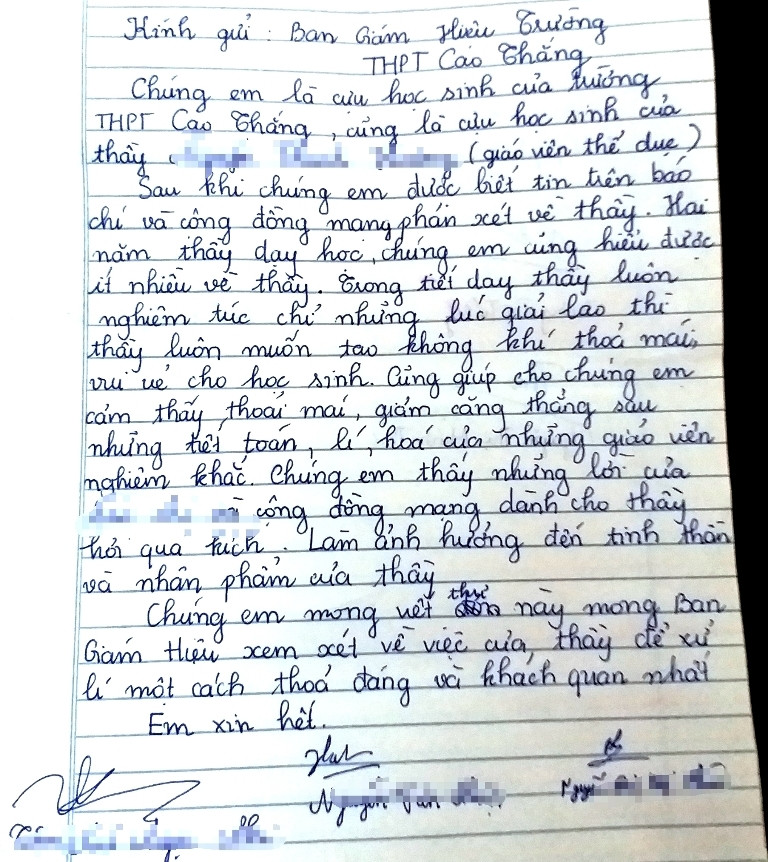 Kính gửi : Ban Giám Hiệu Trường
THPT Cao Thắng
Chúng em là cựu học sinh của trường
THPT Cao Thắng, cũng là cựu học sinh của
thầy (giáo viên thể dục)
Sau khi chúng em được biết tin trên báo
chí và cộng đồng mạng phán xét về thầy. Hai
năm thầy dạy học, chúng em cũng hiểu được
ít nhiều về thầy. Trong tiết dạy thầy luôn
nghiêm túc chỉ những lúc giải lao thì
thầy luôn muốn tạo không khí thoả mái,
vui vẻ cho học sinh. Cũng giúp cho chúng em
cảm thấy thoải mái, giảm căng thẳng sau
những tiết toán, lí, hoá của những giáo viên
nghiêm khắc. Chúng em thấy những lời của
cộng đồng mạng dành cho thầy
hơi quá khích. Làm ảnh hưởng đến tinh thần
và nhân phẩm của thầy
Chúng em mong viết thư này mong Ban
Giám Hiệu xem xét về việc của thầy để xử
lí một cách thoả đáng và khách quan nhất
Em xin hết.
Nguyễn Văn
Nguyễn